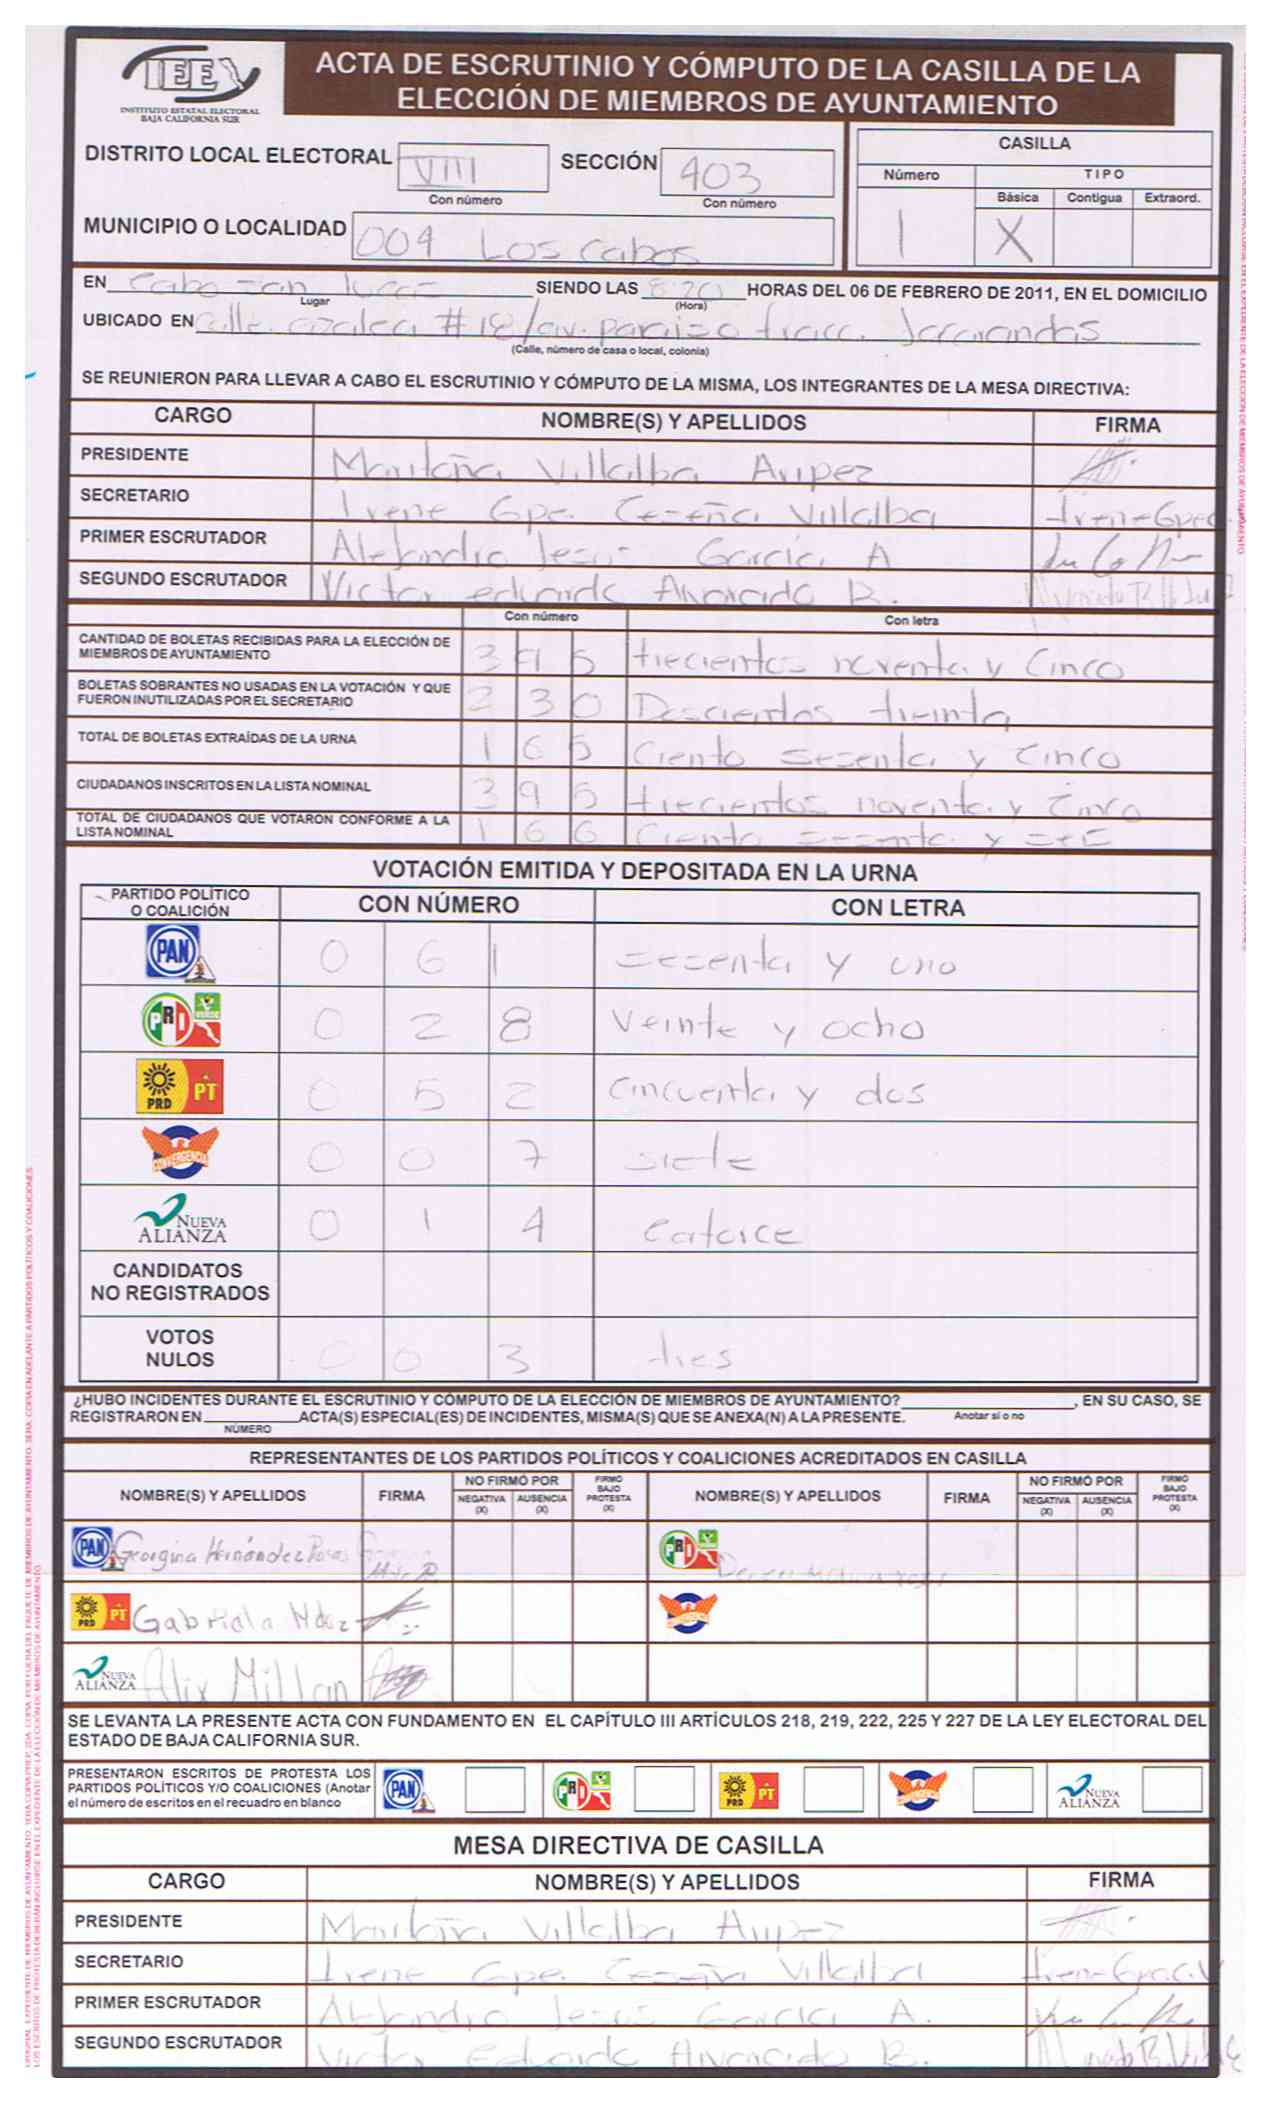 IEE
INSTITUTO ESTATAL ELECTORAL
BAJA CALIFORNIA SUR
ACTA DE ESCRUTINIO Y CÓMPUTO DE LA CASILLA DE LA
ELECCIÓN DE MIEMBROS DE AYUNTAMIENTO
DISTRITO LOCAL ELECTORAL VIII SECCIÓN 403
Con número Con número
MUNICIPIO O LOCALIDAD 004 Los Cabos
CASILLA
Número TIPO
Básica Contigua Extraord.
1 X
EN Cabo san lucas SIENDO LAS 8:20 HORAS DEL 06 DE FEBRERO DE 2011, EN EL DOMICILIO
Lugar (Hora)
UBICADO EN Calle azalea #18/av. paraiso fracc. Jacarandas
(Calle, número de casa o local, colonia)
SE REUNIERON PARA LLEVAR A CABO EL ESCRUTINIO Y CÓMPUTO DE LA MISMA, LOS INTEGRANTES DE LA MESA DIRECTIVA:
CARGO NOMBRE(S) Y APELLIDOS FIRMA
PRESIDENTE Villalba
SECRETARIO Irene Gpe. Ceseña Villalba Irene Gpe
PRIMER ESCRUTADOR Alejandro Jesus Garcia A
SEGUNDO ESCRUTADOR Victor eduardo Alvarado B.
Con número Con letra
CANTIDAD DE BOLETAS RECIBIDAS PARA LA ELECCIÓN DE
MIEMBROS DE AYUNTAMIENTO 3 9 5 trecientos noventa y cinco
BOLETAS SOBRANTES NO USADAS EN LA VOTACIÓN Y QUE
FUERON INUTILIZADAS POR EL SECRETARIO 2 3 0 Descientos treinta
TOTAL DE BOLETAS EXTRAÍDAS DE LA URNA 1 6 5 Ciento sesenta y cinco
CIUDADANOS INSCRITOS EN LA LISTA NOMINAL 3 9 5 trecientos noventa y cinco
TOTAL DE CIUDADANOS QUE VOTARON CONFORME A LA
LISTA NOMINAL 1 6 6 Ciento sesenta y seis
VOTACIÓN EMITIDA Y DEPOSITADA EN LA URNA
PARTIDO POLÍTICO
O COALICIÓN CON NÚMERO CON LETRA
PAN 0 6 1 sesenta y uno
PRI VERDE 0 2 8 Veinte y ocho
PRD PT 0 5 2 cincuenta y dos
CONVERGENCIA 0 0 7 siete
NUEVA ALIANZA 0 1 4 catorce
CANDIDATOS
NO REGISTRADOS
VOTOS
NULOS 0 0 3 tres
¿HUBO INCIDENTES DURANTE EL ESCRUTINIO Y CÓMPUTO DE LA ELECCIÓN DE MIEMBROS DE AYUNTAMIENTO? , EN SU CASO, SE
REGISTRARON EN ACTA(S) ESPECIAL(ES) DE INCIDENTES, MISMA(S) QUE SE ANEXA(N) A LA PRESENTE. Anotar si o no
NÚMERO
REPRESENTANTES DE LOS PARTIDOS POLÍTICOS Y COALICIONES ACREDITADOS EN CASILLA
NOMBRE(S) Y APELLIDOS FIRMA NO FIRMÓ POR NEGATIVA (X) AUSENCIA (X) FIRMÓ BAJO PROTESTA (X) NOMBRE(S) Y APELLIDOS FIRMA NO FIRMÓ POR NEGATIVA (X) AUSENCIA (X) FIRMÓ BAJO PROTESTA (X)
PAN Georgina Hernández PRI
PRD PT Gabriela Mdez CONVERGENCIA
NUEVA ALIANZA Alix Millan
SE LEVANTA LA PRESENTE ACTA CON FUNDAMENTO EN EL CAPÍTULO III ARTÍCULOS 218, 219, 222, 225 Y 227 DE LA LEY ELECTORAL DEL
ESTADO DE BAJA CALIFORNIA SUR.
PRESENTARON ESCRITOS DE PROTESTA LOS
PARTIDOS POLÍTICOS Y/O COALICIONES (Anotar
el número de escritos en el recuadro en blanco
PAN PRI PRD PT CONVERGENCIA NUEVA ALIANZA
MESA DIRECTIVA DE CASILLA
CARGO NOMBRE(S) Y APELLIDOS FIRMA
PRESIDENTE Villalba
SECRETARIO Irene Gpe. Ceseña Villalba
PRIMER ESCRUTADOR Alejandro Jesus Garcia A.
SEGUNDO ESCRUTADOR Victor Eduardo Alvarado B.